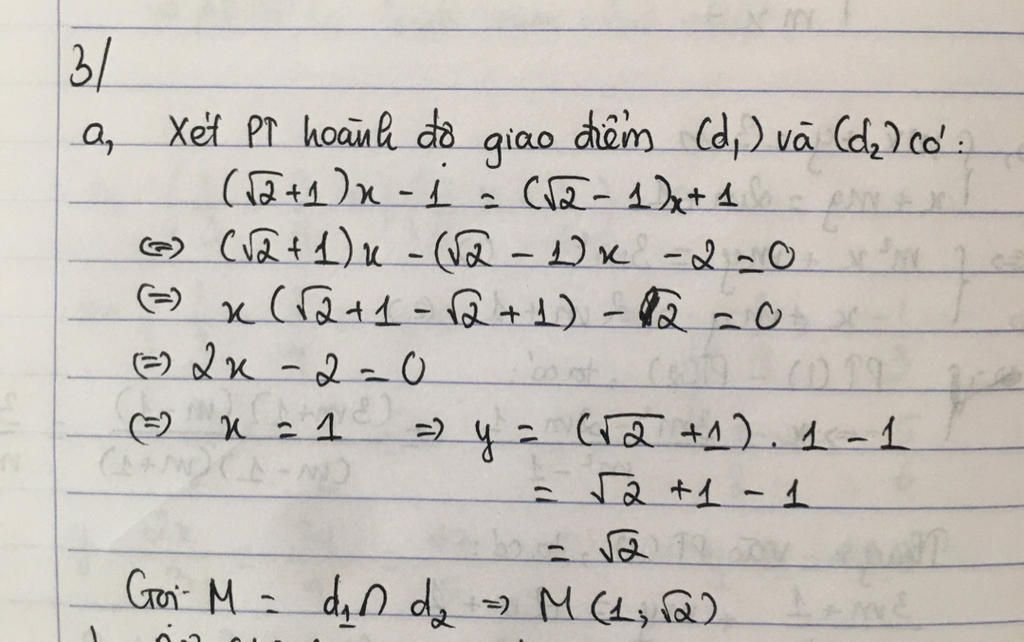 3/
a, Xét PT hoành độ giao điểm (d₁) và (d₂) có:
(√2+1)x - 1 = (√2 - 1)x + 1
(=) (√2 + 1)x - (√2 - 1)x - 2 = 0
(=) x(√2 + 1 - √2 + 1) - 2 = 0
(=) 2x - 2 = 0
(=) x = 1 => y = (√2 + 1). 1 - 1
= √2 + 1 - 1
= √2
Gọi M = d₁ ∩ d₂ => M(1; √2)